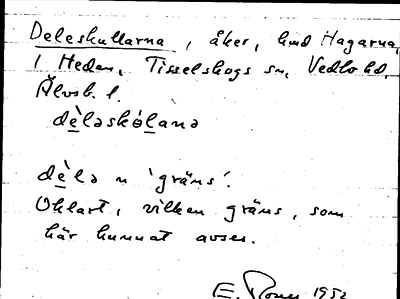 Deleskullarna, åker, hmd Hagarna,
1 Heden, Tisselskogs sn, Vedbo hd,
Älvsb. l.
dè̲ləskòl̲anə
dè̲lə n 'gräns'.
Oklart, vilken gräns, som
här kunnat avses.
E. 1952